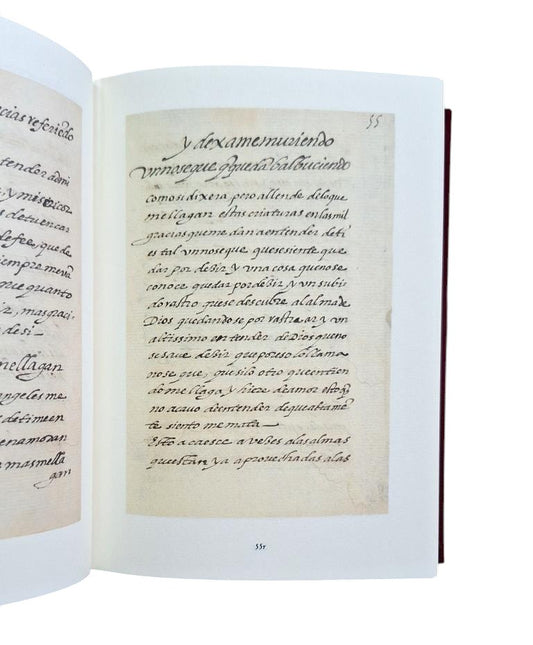 cias refiriedo
tender admi
y misericor
s de tu encar
de fee, que de
iempre me van
que quanto
bir, mas graci
de si
mellagan
angeles me
de ti me en
enamoran
e mas mella
gan
55
y dexame muriendo
Vn no se que q̃ quedã balbuciendo
como si dixera pero allende de lo que
me llagan estas criaturas en las mil
gracias que me dan a entender de ti
es tal vn no se que que se siente que
dar por debir y vna cosa que no se
conoce quedar por debir y vn subi
do rastro que se descubre al alma de
Dios quedandose por rastrear y vn
altissimo entender de Dios que no
se save debir que por eso lo llama
no se que, que si lo otro que entien
do me llaga y hiere de amor esto q̃
no acavo de entender de que altamẽ
te siento me mata.
Esto acaesce a vebes a las almas
que estan ya aprovechadas a las
55r